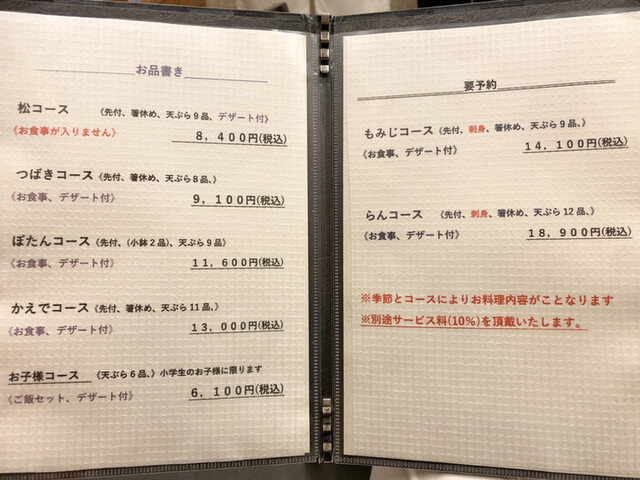 お品書き
松コース 《先付、箸休め、天ぷら9品、デザート付》
《お食事が入りません》 8，400円(税込)
つばきコース《先付、箸休め、天ぷら8品、》
《お食事、デザート付》 9，100円(税込)
ぼたんコース《先付、(小鉢2品)、天ぷら9品》
《お食事、デザート付》 11，600円(税込)
かえでコース《先付、箸休め、天ぷら11品、》
《お食事、デザート付》 13，000円(税込)
お子様コース 《天ぷら6品、》小学生のお子様に限ります
《ご飯セット、デザート付》 6，100円(税込)
要予約
もみじコース《先付、刺身、箸休め、天ぷら9品、》
《お食事、デザート付》 14，100円(税込)
らんコース 《先付、刺身、箸休め、天ぷら12品、》
《お食事、デザート付》 18，900円(税込)
※季節とコースによりお料理内容がことなります
※別途サービス料(10%)を頂戴いたします。